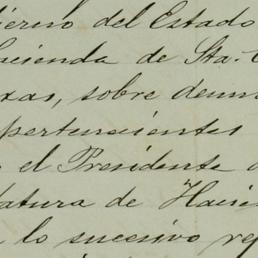 ierno del Estado
acienda de Sta.
xas, sobre denun
pertenecientes
el Presidente
latura de Hacien
lo sucesivo rep